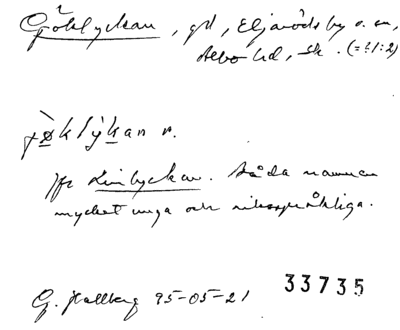 Göklyckan, gd, Eljaröds by o. sn,
Albo hd, Sk. (=1:2)
jø̀klýkan n.
Jfr Linlyckan. Båda namnen
mycket unga och riksspråkliga.
G. Hallberg 95-05-21
33735